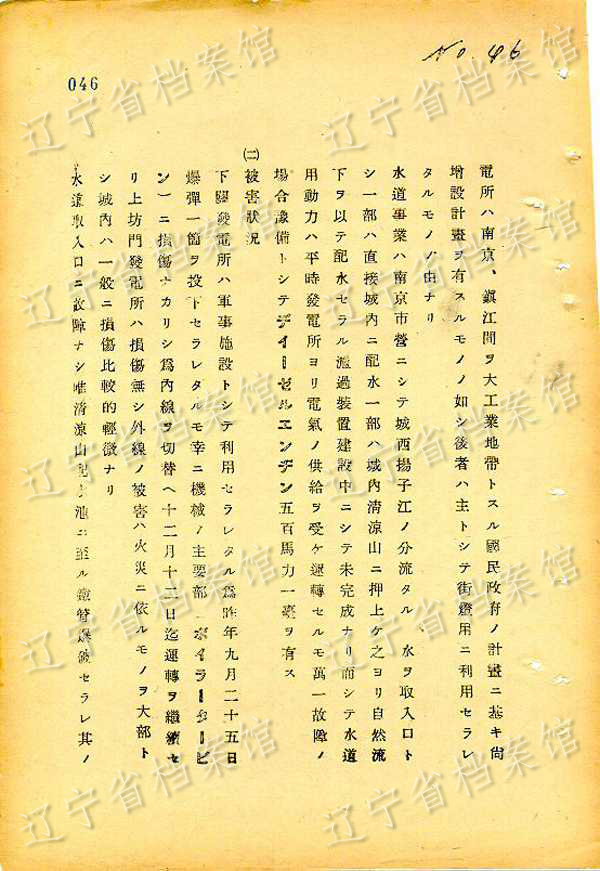 No. 46
046
電所ハ南京、鎭江間ヲ大工業地帶トスル國民政府ノ計畫ニ基キ尙
增設計畫ヲ有スルモノノ如シ後者ハ主トシテ街燈用ニ利用セラレ
タルモノノ由ナリ
水道事業ハ南京市營ニシテ城西揚子江ノ分流タル 水ヲ取入口ト
シ一部ハ直接城內ニ配水一部ハ城內淸凉山ニ押上ケ之ヨリ自然流
下ヲ以テ配水セラル濾過裝置建設中ニシテ未完成ナリ而シテ水道
用動力ハ平時發電所ヨリ電氣ノ供給ヲ受ケ運轉セルモ萬一故障ノ
場合豫備トシテディーゼルエンヂン五百馬力一臺ヲ有ス
㈡被害狀況
下關發電所ハ軍事施設トシテ利用セラレタル爲昨年九月二十五日
爆彈一箇ヲ投下セラレタルモ幸ニ機械ノ主要部 ボイラータービ
ン)ニ損傷ナカリシ爲內線ヲ切替ヘ十二月十二日迄運轉ヲ繼續セ
リ上坊門發電所ハ損傷無シ外線ノ被害ハ火災ニ依ルモノヲ大部ト
シ城內ハ一般ニ損傷比較的輕微ナリ
水道取入口ニ故障ナシ唯淸凉山 池ニ至ル 管爆破セラレ其ノ
辽宁省档案馆
辽宁省档案馆
辽宁省档案馆
辽宁省档案馆
辽宁省档案馆
辽宁省档案馆
辽宁省档案馆
辽宁省档案馆